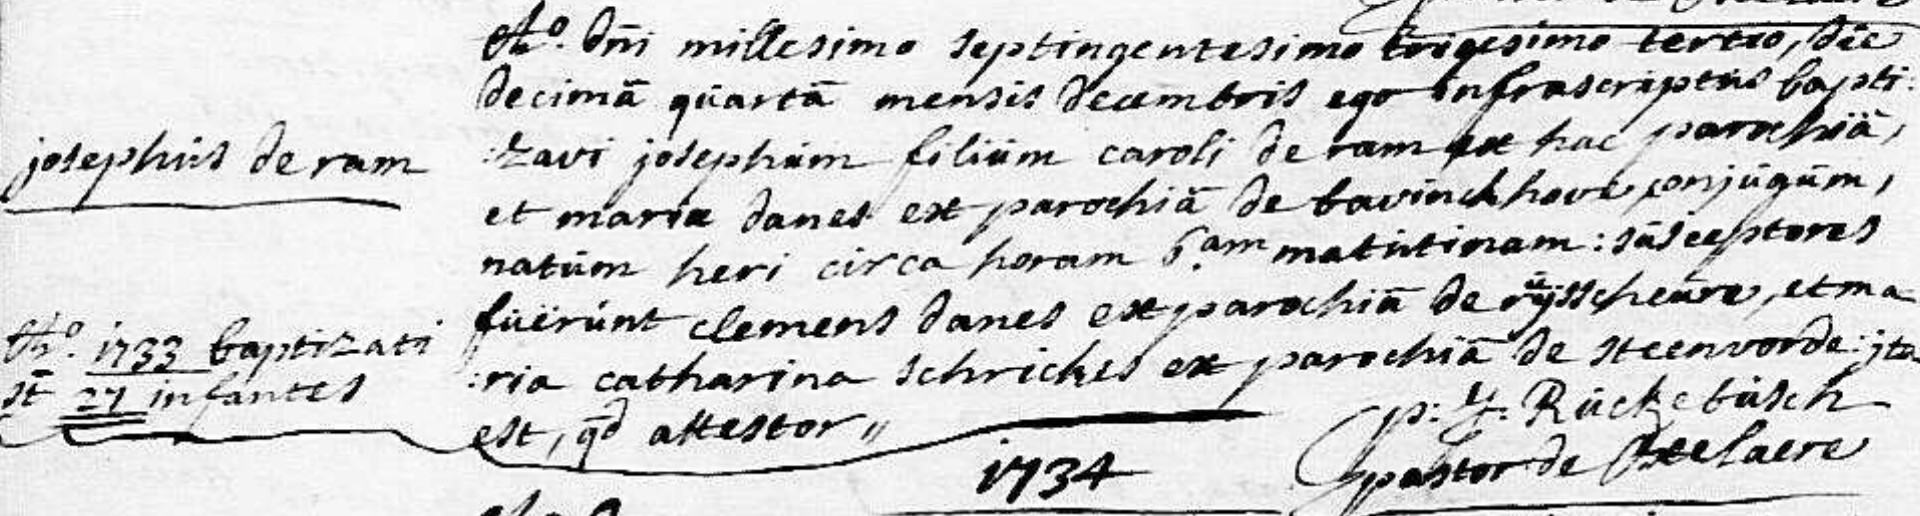 Aº. Dni millesimo septingentesimo trigesimo tertio, die
decimâ quartâ mensis decembris ego infrascriptus bapti:
josephus de ram
:zavi josephum filium caroli de ram ex hac parochiâ,
et mariæ danes ex parochiâ de bavinckhove conjugum,
natum heri circa horam 6.am matutinam: susceptores
fuerunt clemens danes ex parochiâ de ruÿsscheure, et ma
Aº. 1733 baptizati
:ria catharina schrickes ex parochiâ de steenvorde: jta
st 27 infantes
est, qd attestor,,
p: J: Ruckebusch
pastor de Oxelaere
1734